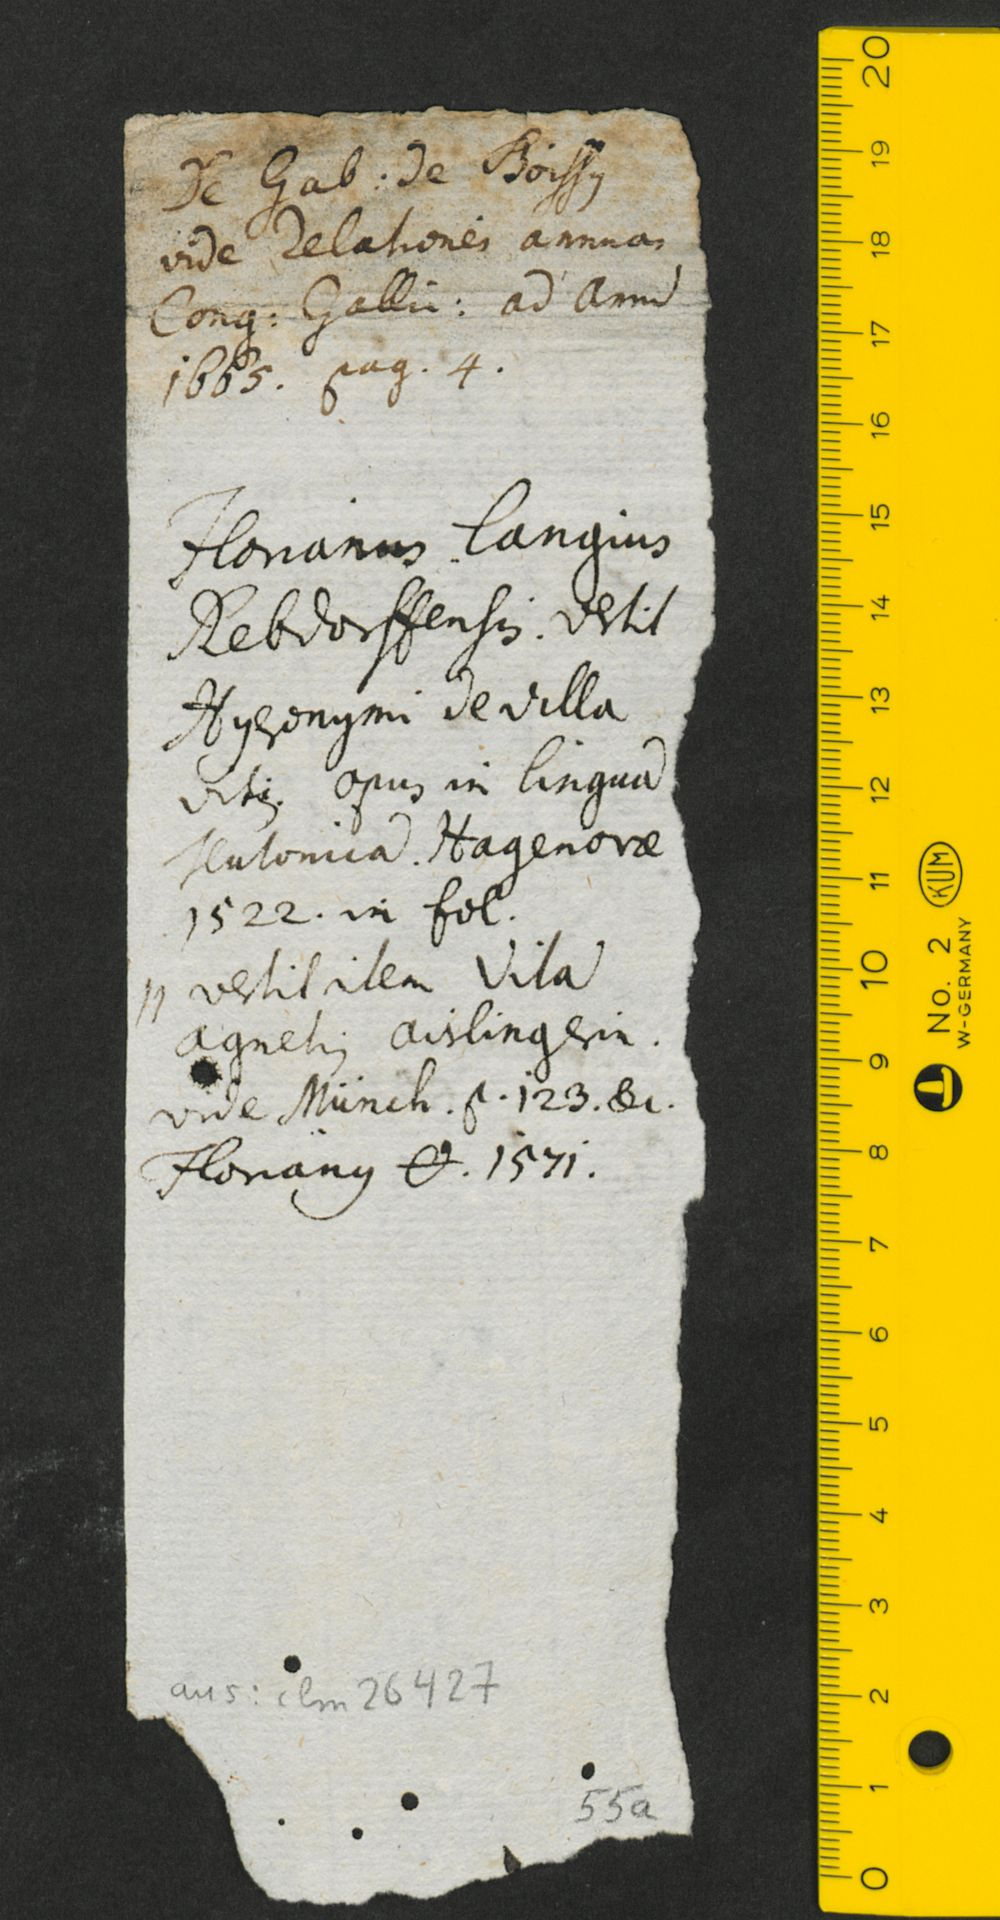 De Gab: de Boissy
vide Relationes annuas
Cong: Gallic: ad Annu
1665. pag. 4.
Florianus Langius
Rebdorffensis. vertit
Hyeronymi de villa
vitis opus in lingua
teutonica. Hagenovæ
1522. in fol.
vertit item Vita
agnetis aislingerin.
vide Münch. p. 123. &c.
Florianus 1571.
aus: clm 26427
55a
20
19
18
17
16
15
14
13
12
11
10
9
8
7
6
5
4
3
2
1
0
KUM
No. 2
W-GERMANY